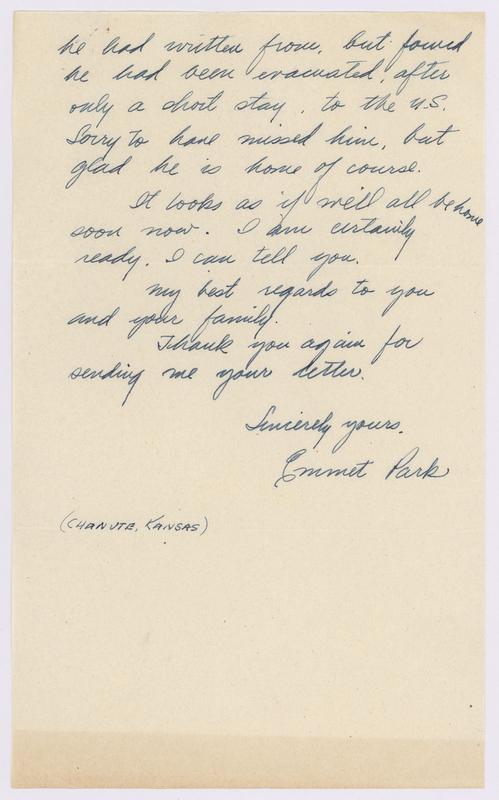 he had written from, but found
he had been evacuated, after
only a short stay, to the U.S.
Sorry to have missed him, but
glad he is home of course.
It looks as if we'll all be home
soon now. I am certainly
ready, I can tell you.
My best regards to you
and your family.
Thank you again for
sending me your letter.
Sincerely yours,
Emmet Park
(CHANUTE, KANSAS)